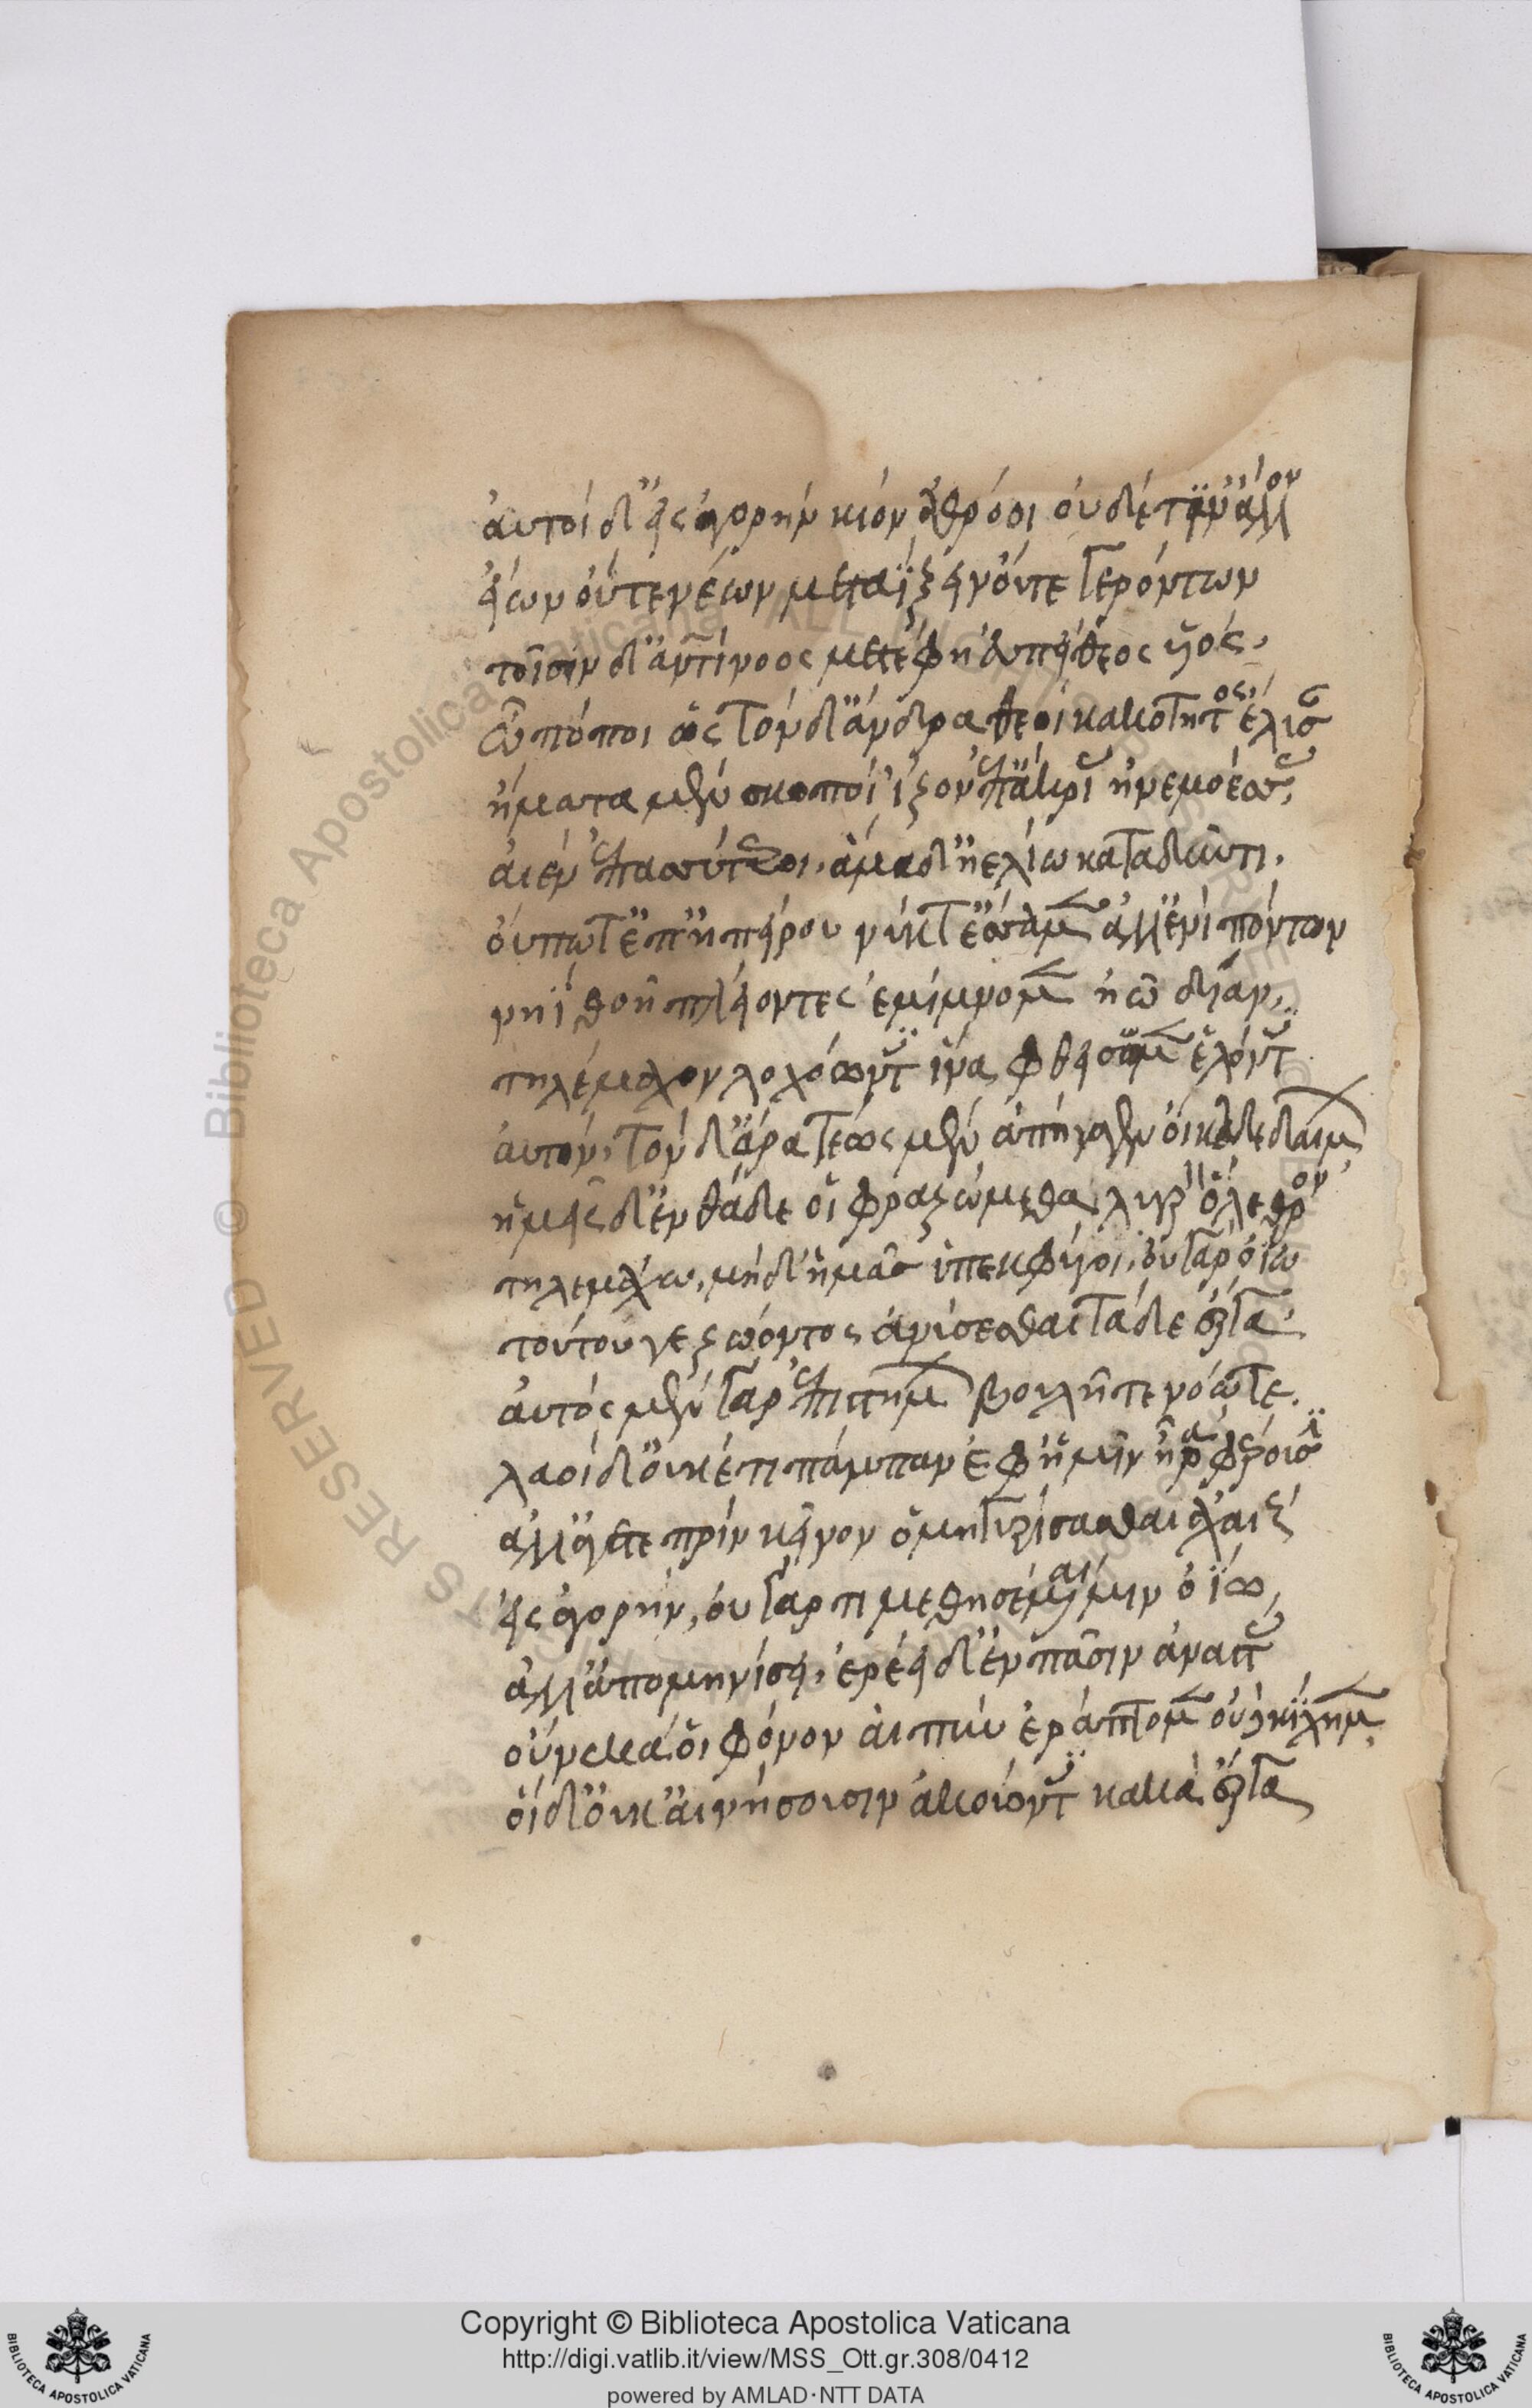 αὐτοὶ δ' εἰς ἀγορὴν κίον ἀθρόοι οὐδέ τιν' ἄλλον
εἴων οὔτε νέων μεταΐζειν οὔτε γερόντων
τοῖσιν δ' ἀντίνοος μετέφη ἐυπείθεος υἱός.
ὢ πόποι ὡς τόνδ' ἄνδρα θεοὶ κακότητος ἔλυσαν
ἤματα μὲν σκοποὶ ἷζον ἐπ' ἄκριας ἠνεμοέσσας,
αἰὲν ἐπασσύτεροι. ἅμα δ' ἠελίω καταδύντι.
οὔποτ' ἐπ' ἠπείρου νύκτ' ἄσαμεν ἀλλ' ἐνὶ πόντων
νηῒ θοῆ πλείοντες ἐμίμνομεν ἠῶ δῖαν,
τηλέμαχον λοχόωντες ἵνα φθείσωμεν ἑλόντες
αὐτόν. τὸν δ' ἄρα τέως μὲν ἀπήγαγεν οἴκαδε δαίμων
ἡμεῖς δ' ἐνθάδε οἱ φραζώμεθα λυγρὸν ὄλεθρον
τηλεμάχω, μὴ δ' ἡμᾶς ὑπεκφύγοι. οὐ γὰρ ὀΐω
τούτου γε ζώοντος ἀνύσεσθαι τάδε ἔργα.
αὐτὸς μὲν γὰρ ἐπιστήμων βουλῆ τε νόω τε.
λαοὶ δ' οὐκέτι πάμπαν ἐφ' ἡμῖν ἦρα φέρουσιν
ἀλλ' ἄγετε πρὶν κεῖνον ὁμηγυρίσασθαι ἀχαιούς
εἰς ἀγορήν, οὐ γάρ τι μεθησέμεναί μιν ὀΐω,
ἀλλ' ἀπομηνίσει. ἐρέει δ' ἐν πᾶσιν ἀναστάς
οὕνεκά οἱ φόνον αἰπὺν ἐράπτομεν οὐδ' ἐκίχημεν,
οἱ δ' οὐκ αἰνήσουσιν ἀκούοντες κακὰ ἔργα